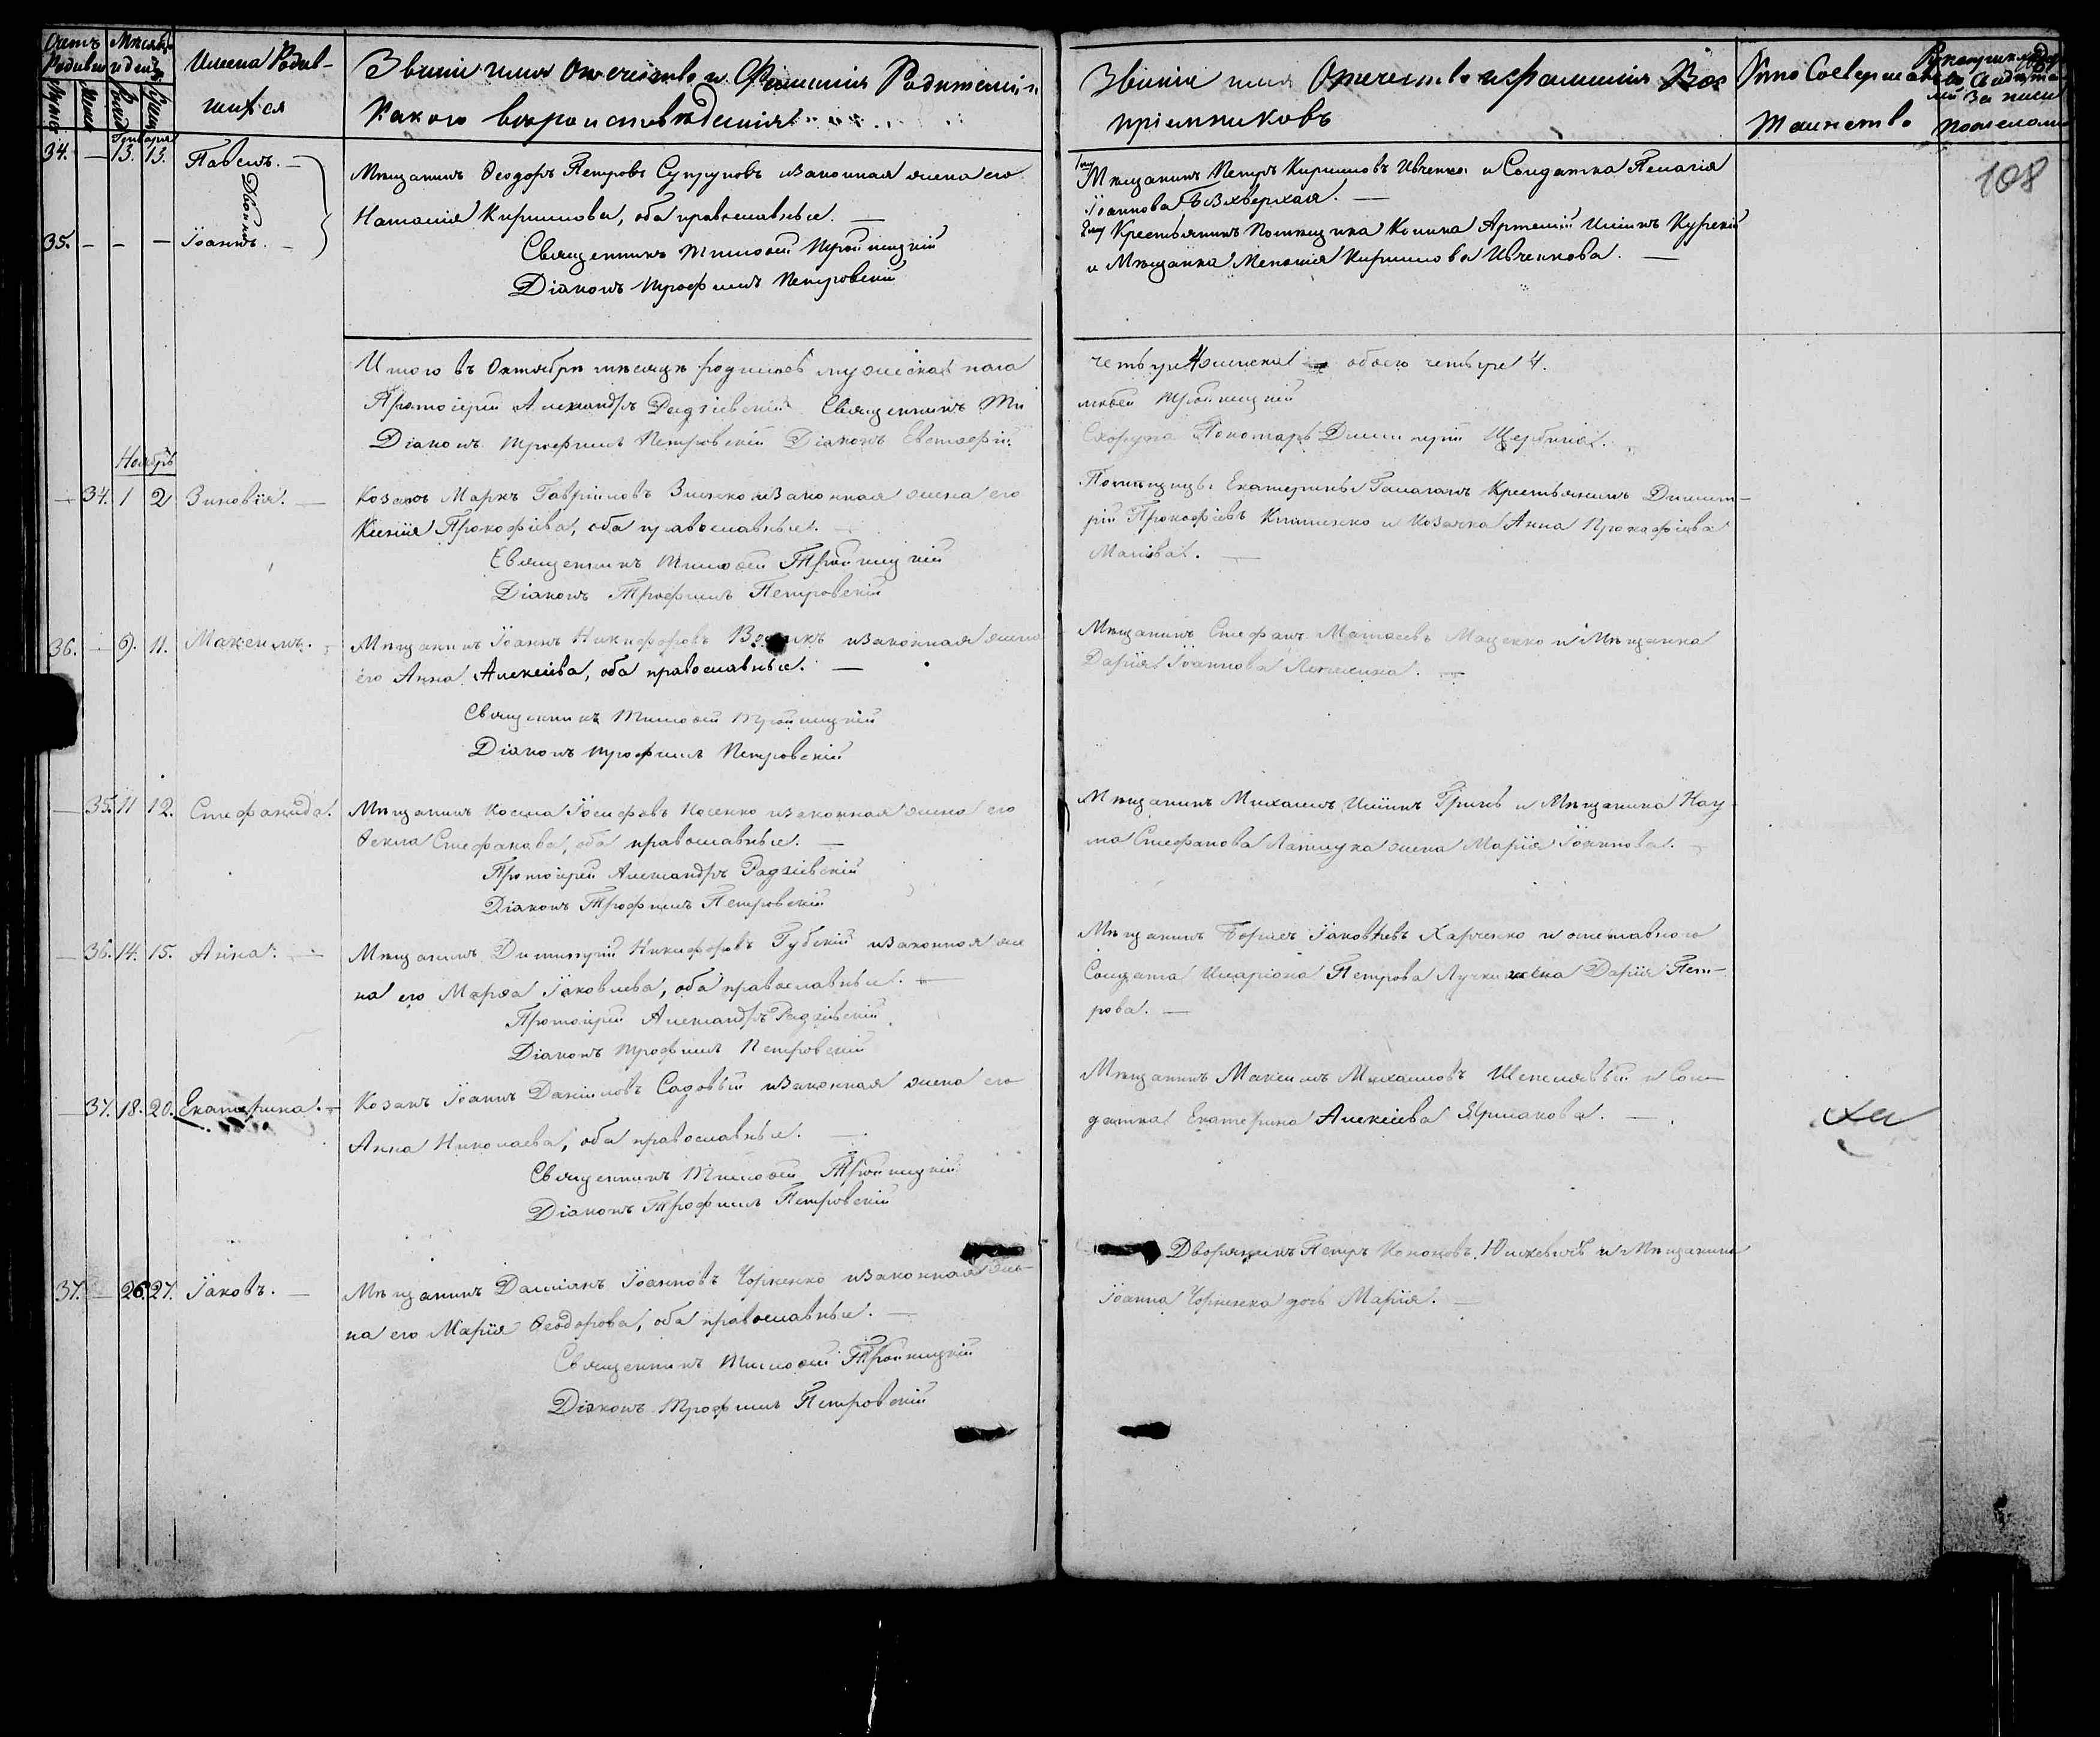 Счетъ Родивш
Мѣсяцъ и день
Имена Родив-
шихся
Званіе имя Отечество и Фамилія Родителей и
Какого вѣроисповѣданія
Званіе имя Отечество и фамилія Вос
пріемниковъ
Кто Совершалъ
Таинство
108
34. — 13. 13. Павелъ. —
Двойни
35. — — — Іоаннъ. —
Мѣщанинъ Ѳеодоръ Петровъ Супруновъ и законная жена его
Наталія Кириллова, оба православные. —
Священникъ Тимоѳей Тройницкій
Діаконъ Трофимъ Петровскій
1му Мѣщанинъ Петръ Кирилловъ Ивченко и Солдатка Пелагія
Іоаннова —
2му Крестьянинъ Помѣщика Артемій Ильинъ Курскій
и Мѣщанка Меланія Кириллова Ивченкова. —
Итого въ Октябрѣ мѣсяцѣ родилось мужеска пола
Протоіерей Александръ Радзіевскій Священникъ Ти
Діаконъ Трофимъ Петровскій Діаконъ Евстафій
четыре женска обоего четыре 4.
моѳей Тройницкій
Скоруха Пономарь Димитрій Щербина.
Ноябрь
— 34. 1 2 Зиновія. —
Козакъ Маркъ Гавріиловъ и законная жена его
Ксенія Прокофіева, оба православные. —
Священникъ Тимоѳей Тройницкій
Діаконъ Трофимъ Петровскій
Помѣщицы Екатерины Галаганъ Крестьянинъ Димит-
рій Прокофіевъ и Козачка Анна Прокофіева
—
36. — 9. 11. Максимъ. —
Мѣщанинъ Іоаннъ Никифоровъ и законная жена
его Анна Алексѣева, оба православные. —
Священникъ Тимоѳей Тройницкій
Діаконъ Трофимъ Петровскій
Мѣщанинъ Стефанъ Матвѣевъ Маценко и Мѣщанка
Дарія Іоаннова —
— 35. 11 12. Стефанида.
Мѣщанинъ Косма Іосифовъ Косенко и законная жена его
Ѳекла Стефанова, оба православные. —
Протоіерей Александръ Радзіевскій
Діаконъ Трофимъ Петровскій
Мѣщанинъ Михаилъ Ильинъ Гринь и Мѣщанина Нау-
ма Стефанова Лапшука жена Марія Іоаннова. —
— 36. 14. 15. Анна. —
Мѣщанинъ Димитрій Никифоровъ Губскій и законная же
на его Марѳа Іаковлева, оба православные. —
Протоіерей Александръ Радзіевскій
Діаконъ Трофимъ Петровскій
Мѣщанинъ Борисъ Іаковлевъ Харченко и отставного
Солдата Иларіона Петрова жена Дарія Пет-
рова. —
— 37. 18. 20. Екатерина. —
Козакъ Іоаннъ Даніиловъ Садовый и законная жена его
Анна Николаева, оба православные. —
Священникъ Тимоѳей Тройницкій
Діаконъ Трофимъ Петровскій
Мѣщанинъ Максимъ Михаиловъ и Сол-
датка Екатерина Алексѣева Ермакова. —
37. — 26. 27. Іаковъ. —
Мѣщанинъ Даміанъ Іоанновъ Чорненко и законная же-
на его Марія Ѳеодорова, оба православные. —
Священникъ Тимоѳей Тройницкій
Діаконъ Трофимъ Петровскій
Дворянинъ Петръ Кононовъ Юшкевичъ и Мѣщанина
Іоанна Чорненка дочь Марія. —